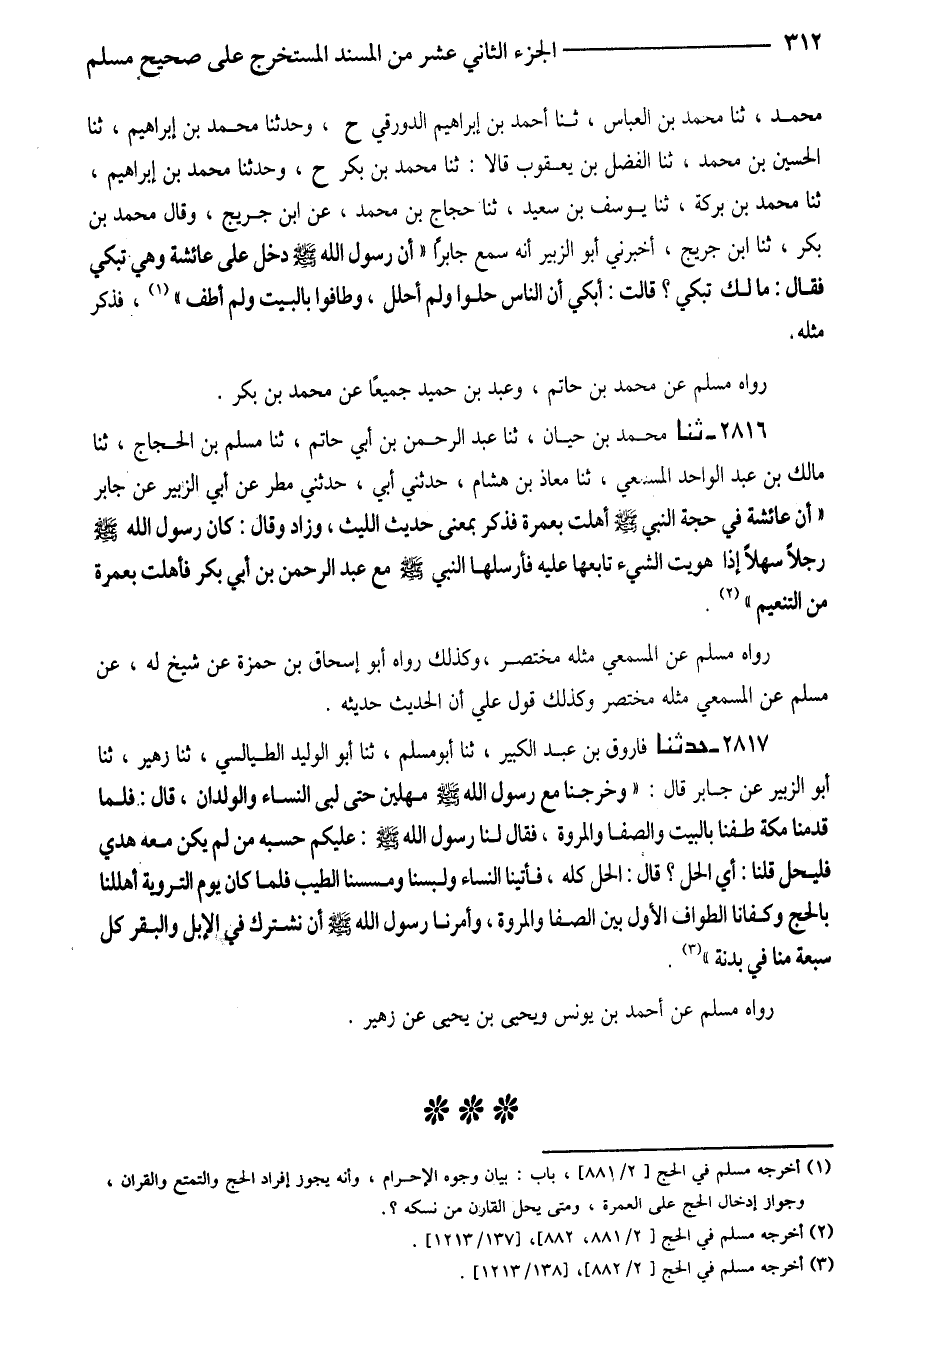 ٣١٢ ــــــــ الجزء الثاني عشر من المسند المستخرج على صحيح مسلم
محمد ، ثنا محمد بن العباس ، ثنا أحمد بن إبراهيم الدورقي ح ، وحدثنا محمد بن إبراهيم ، ثنا
الحسين بن محمد ، ثنا الفضل بن يعقوب قالا : ثنا محمد بن بكر ح ، وحدثنا محمد بن إبراهيم ،
ثنا محمد بن بركة ، ثنا يوسف بن سعيد ، ثنا حجاج بن محمد ، عن ابن جريج ، وقال محمد بن
بكر ، ثنا ابن جريج ، أخبرني أبو الزبير أنه سمع جابرًا « أن رسول الله ﷺ دخل على عائشة وهي تبكي
فقال : ما لك تبكي ؟ قالت : أبكي أن الناس حلوا ولم أحلل ، وطافوا بالبيت ولم أطف » (١) ، فذكر
مثله .
رواه مسلم عن محمد بن حاتم ، وعبد بن حميد جميعًا عن محمد بن بكر .
٢٨١٦ـ ثنا محمد بن حيان ، ثنا عبد الرحمن بن أبي حاتم ، ثنا مسلم بن الحجاج ، ثنا
مالك بن عبد الواحد المسمعي ، ثنا معاذ بن هشام ، حدثني أبي ، حدثني مطر عن أبي الزبير عن جابر
« أن عائشة في حجة النبي ﷺ أهلت بعمرة فذكر بمعنى حديث الليث ، وزاد وقال : كان رسول الله ﷺ
رجلاً سهلاً إذا هويت الشيء تابعها عليه فأرسلها النبي ﷺ مع عبد الرحمن بن أبي بكر فأهلت بعمرة
من التنعيم » (٢) .
رواه مسلم عن المسمعي مثله مختصر ، وكذلك رواه أبو إسحاق بن حمزة عن شيخ له ، عن
مسلم عن المسمعي مثله مختصر وكذلك قول علي أن الحديث حديثه .
٢٨١٧ـ حدثنا فاروق بن عبد الكبير ، ثنا أبومسلم ، ثنا أبو الوليد الطيالسي ، ثنا زهير ، ثنا
أبو الزبير عن جابر قال : « وخرجنا مع رسول الله ﷺ مهلين حتى لبى النساء والولدان ، قال : فلما
قدمنا مكة طفنا بالبيت والصفا والمروة ، فقال لنا رسول الله ﷺ : عليكم حسبه من لم يكن معه هدي
فليحل قلنا : أي الحل ؟ قال : الحل كله ، فأتينا النساء ولبسنا ومسسنا الطيب فلما كان يوم التروية أهللنا
بالحج وكفانا الطواف الأول بين الصفا والمروة ، وأمرنا رسول الله ﷺ أن نشترك في الإبل والبقر كل
سبعة منا في بدنة » (٣) .
رواه مسلم عن أحمد بن يونس ويحيى بن يحيى عن زهير .
(١) أخرجه مسلم في الحج [ ٨٨١/٢] ، باب : بيان وجوه الإحرام ، وأنه يجوز إفراد الحج والتمتع والقران ،
وجواز إدخال الحج على العمرة ، ومتى يحل القارن من نسكه ؟.
(٢) أخرجه مسلم في الحج [ ٨٨١/٢، ٨٨٢]، [١٢١٣/١٣٧] .
(٣) أخرجه مسلم في الحج [ ٨٨٢/٢]، [١٢١٣/١٣٨] .